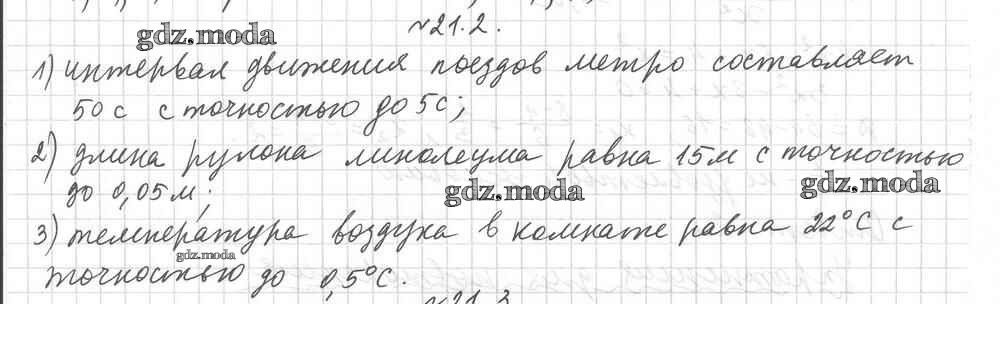 №21.2.
gdz.moda
1) интервал движения поездов метро составляет
50 с с точностью до 5с;
2) длина рулона линолеума равна 15м с точностью
до 0,05м;
gdz.moda
gdz.moda
3) температура воздуха в комнате равна 22°С с
gdz.moda
точностью до 0,5°С.
№21.3